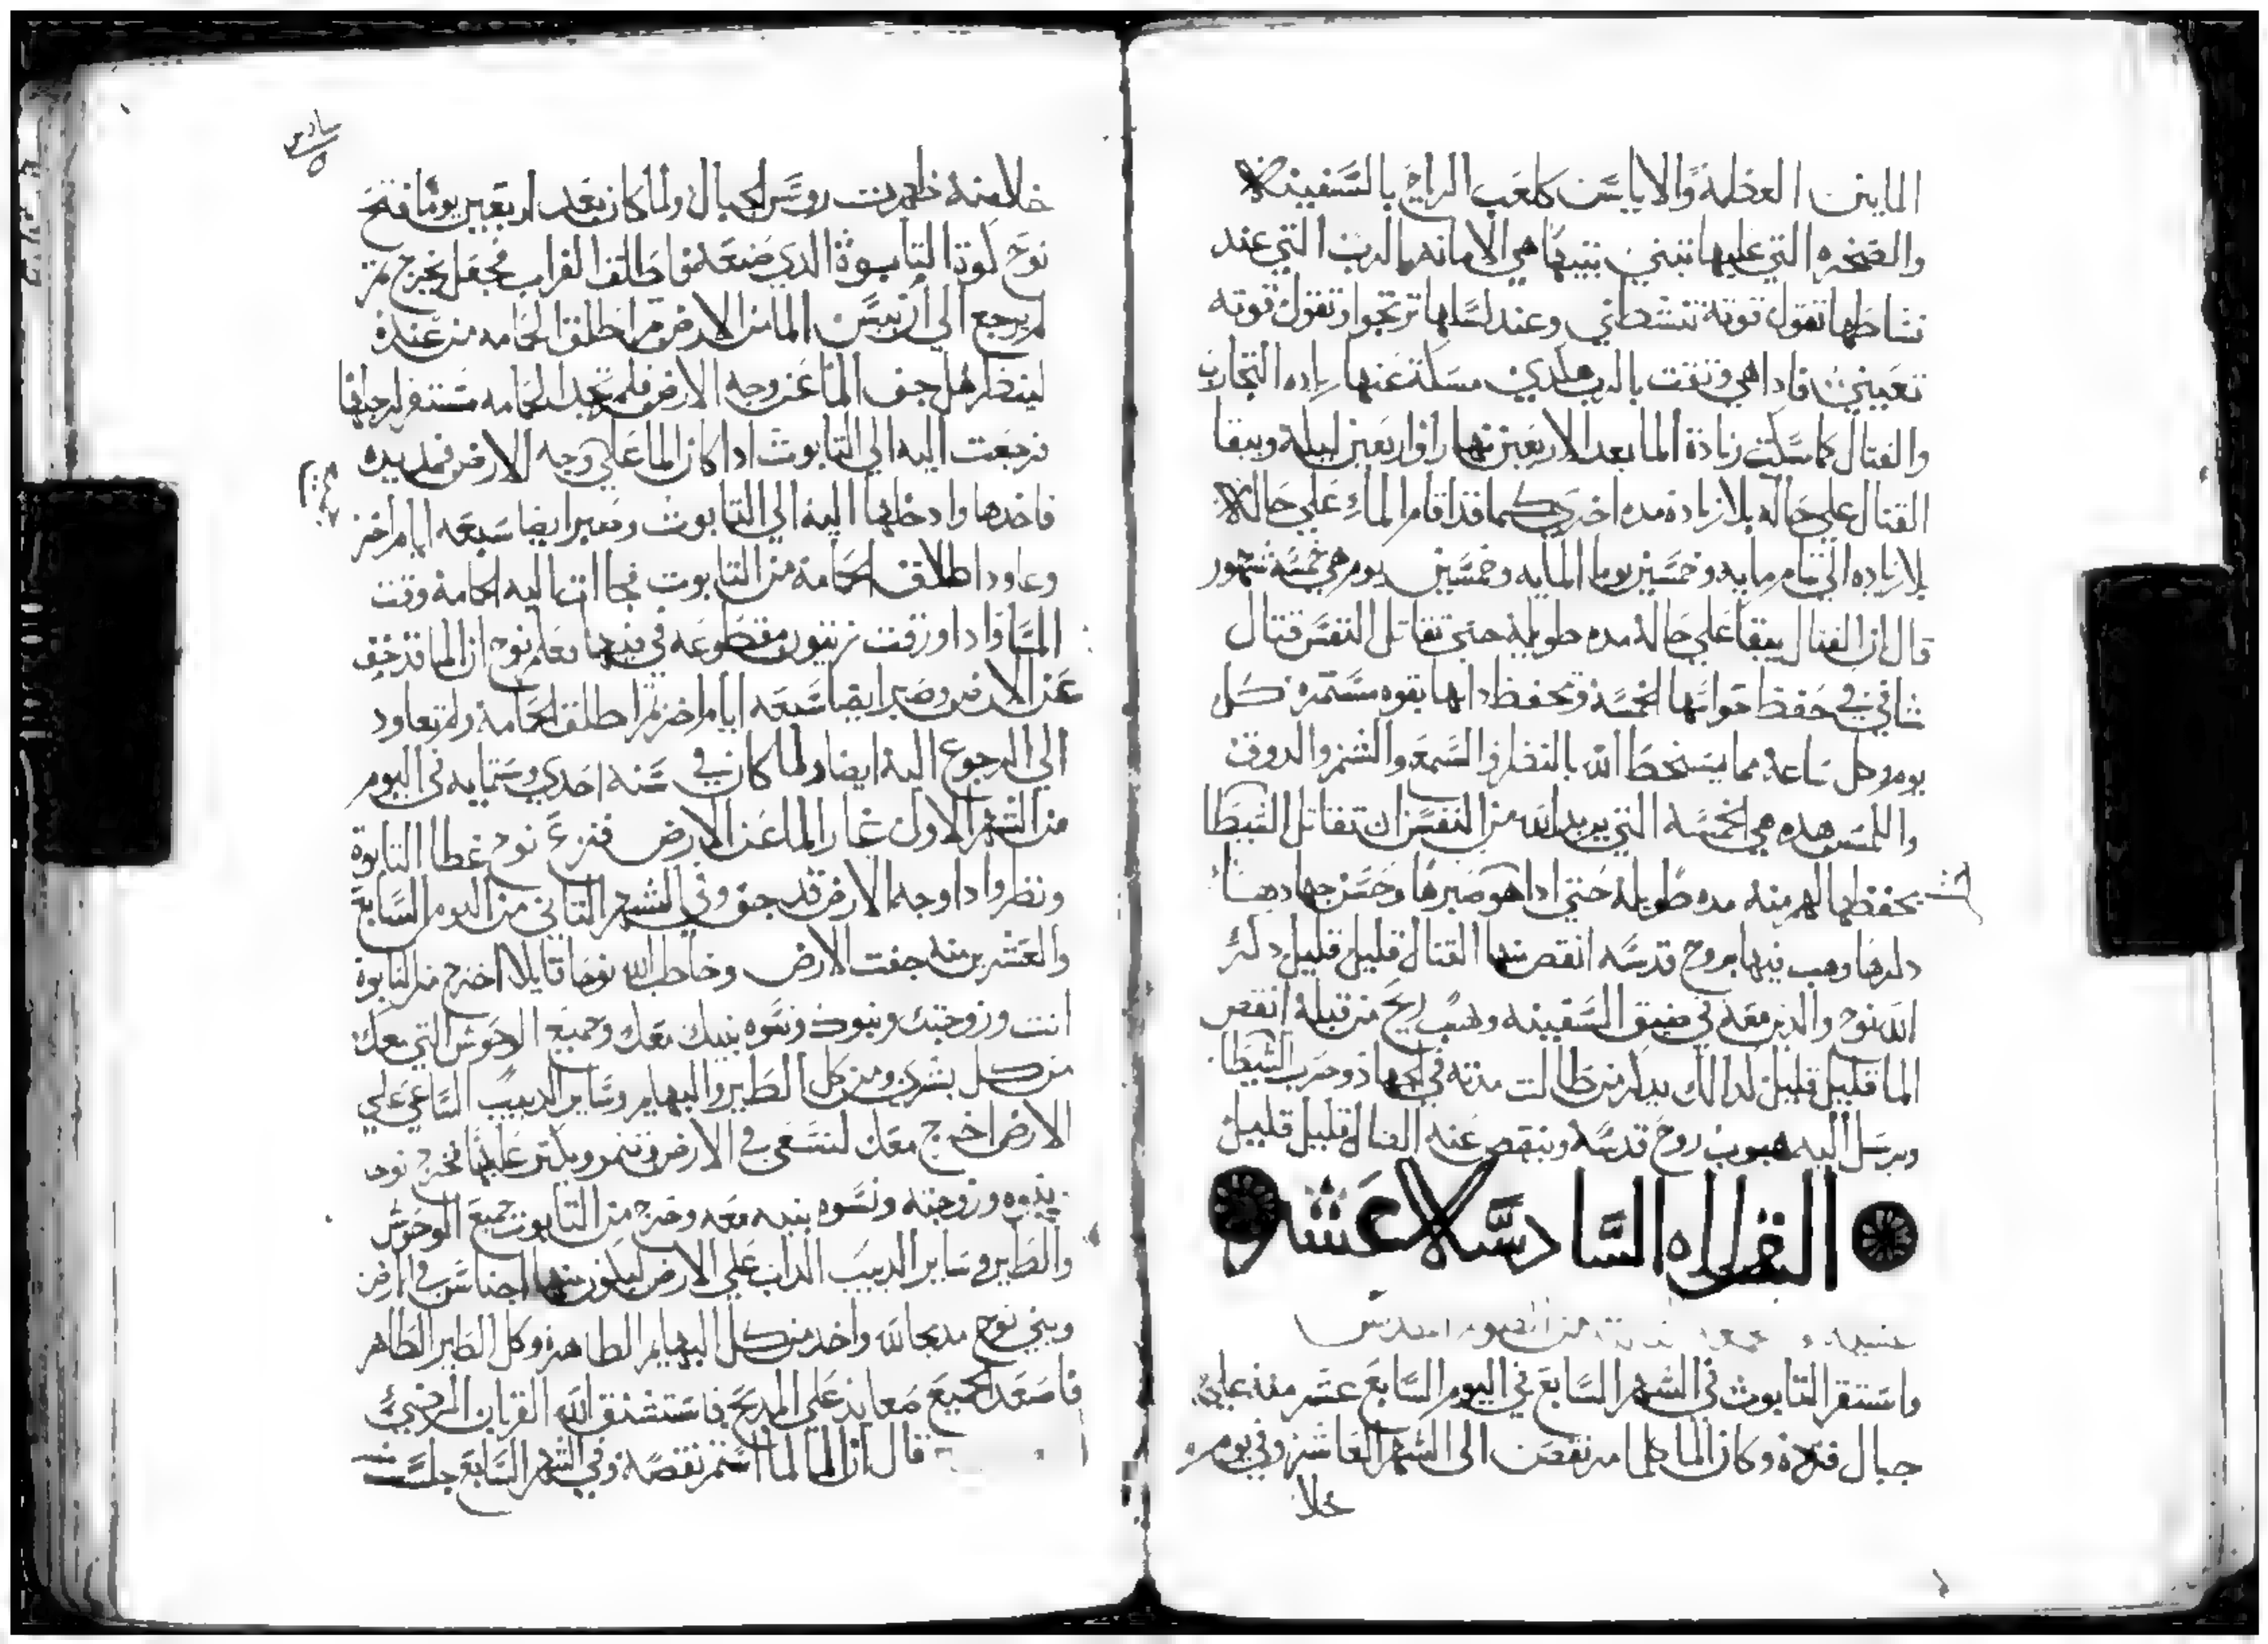 الماين العظيمة والاياسن كلعب الرياح بالسفينه
والصخره التي عليها تبني بيتها هي الامانه بالرب التي عند
نشاطها تقول قوته تنشطني وعند كسلها ترتجوا وتقول قوته
تعينني فاداهي وثقت بالرب هكدي مسكة عنها زياده التجارب
والقتال كما سكت زيادة الما بعد الاربعين نهارا واربعين ليله ويبقا
القتال علي حاله بلا زياده مده اخري كما قد اقام الما علي حاله
بلا زياده الي تمام مايه وخمسين يوما المايه وخمسين يوم هي خمسة شهور
قال ان القتال يبقا علي حاله مده طويله حتي تقاتل النفس قتال
تاني في حفظ حواسها الخمسه وتحفظ دايها بقوه مستمره كل
يوم وكل ساعة مما يسخط الله بالنظر والسمع والشم والدوق
واللمس هده هي الخمسه التي يريد الله من النفس ان تقاتل الشيطان
بحفظها لهم منه مده طويله حتي اداهو صبرها وحسن جهادها
دكرها وهب فيها بروح قدسه انقص منها القتال قليل قليل دكر
الله نوح والدين معه في ضيق السفينه وهبب ريح من قبله انقص
الما قليل قليل لدالك يدكر من طالت مدته في الجهاد وحرب الشيطان
ويرسل اليه هبوب روح قدسه وينقص عنه القتال قليل قليل
القراه السادسه عشر
عشية
واستقر التابوت في الشهر السابع في اليوم السابع عشر منه علي
جبال قردة وكان الما كلما مر نقص الى الشهر العاشر وفي يوم
خلا
سادس
٥
خلا منه ظهرت روس الجبال ولما كان بعد اربعين يوما فتح
نوح كوة التابوة الدي صنعه واطلق الغراب فجعل يخرج ثم
لم يرجع الي ان يبس الما من الارض ثم اطلق الحمامه من عنده
لينظر هل جف الما عن وجه الارض فلم تجد الحمامه مستقر لرجليها
فرجعت اليه الي التابوت اد كان الما علي وجه الارض فمد يده
فاخدها وادخلها اليه الي التابوت وصبر ايضا سبعه ايام اخر
وعاود اطلاق الحمامة من التابوت فجا اتا اليه الحمامة وقت
المسا وادا ورقت زيتون مقطوعه في فيها فعلم نوح ان الما قد خف
عن الارض وصبر ايضا سبعه ايام اخر ثم اطلق الحمامة ولم تعاود
الي الرجوع اليه ايضا ولما كان في سنه احدي وستمايه في اليوم
من الشهر الاول غار الما عن الارض فنزع نوح غطا التابوة
ونظر وادا وجه الارض قد جف وفي الشهر التاني من اليوم السابع
والعشرين منه جفت الارض وخاطب الله نوحا قايلا اخرج من التابوة
انت وزوجتك وبنوك ونسوه بنيك معك وجميع الوحوش التي معك
من كل بشري ومن كل الطير والبهايم وساير الدبيب الساعي علي
الارض اخرج معك لتسعي في الارض وتنمو ويكتر عليها فخرج نوح
بنوه وزوجته ونسوه بنيه معه وخرج من التابوت جميع الوحوش
والطير وساير الدبيب الداب علي الارض ليكون منها اجناس في الارض
وبني نوح مدبحا لله واخد من كل البهايم الطاهرة وكل الطير الطاهر
فاصعد الجميع صعايد علي المدبح فاستنشق الله القربان المرضي
قال ان الما لما استمر نقصه وفي الشهر السابع جلست